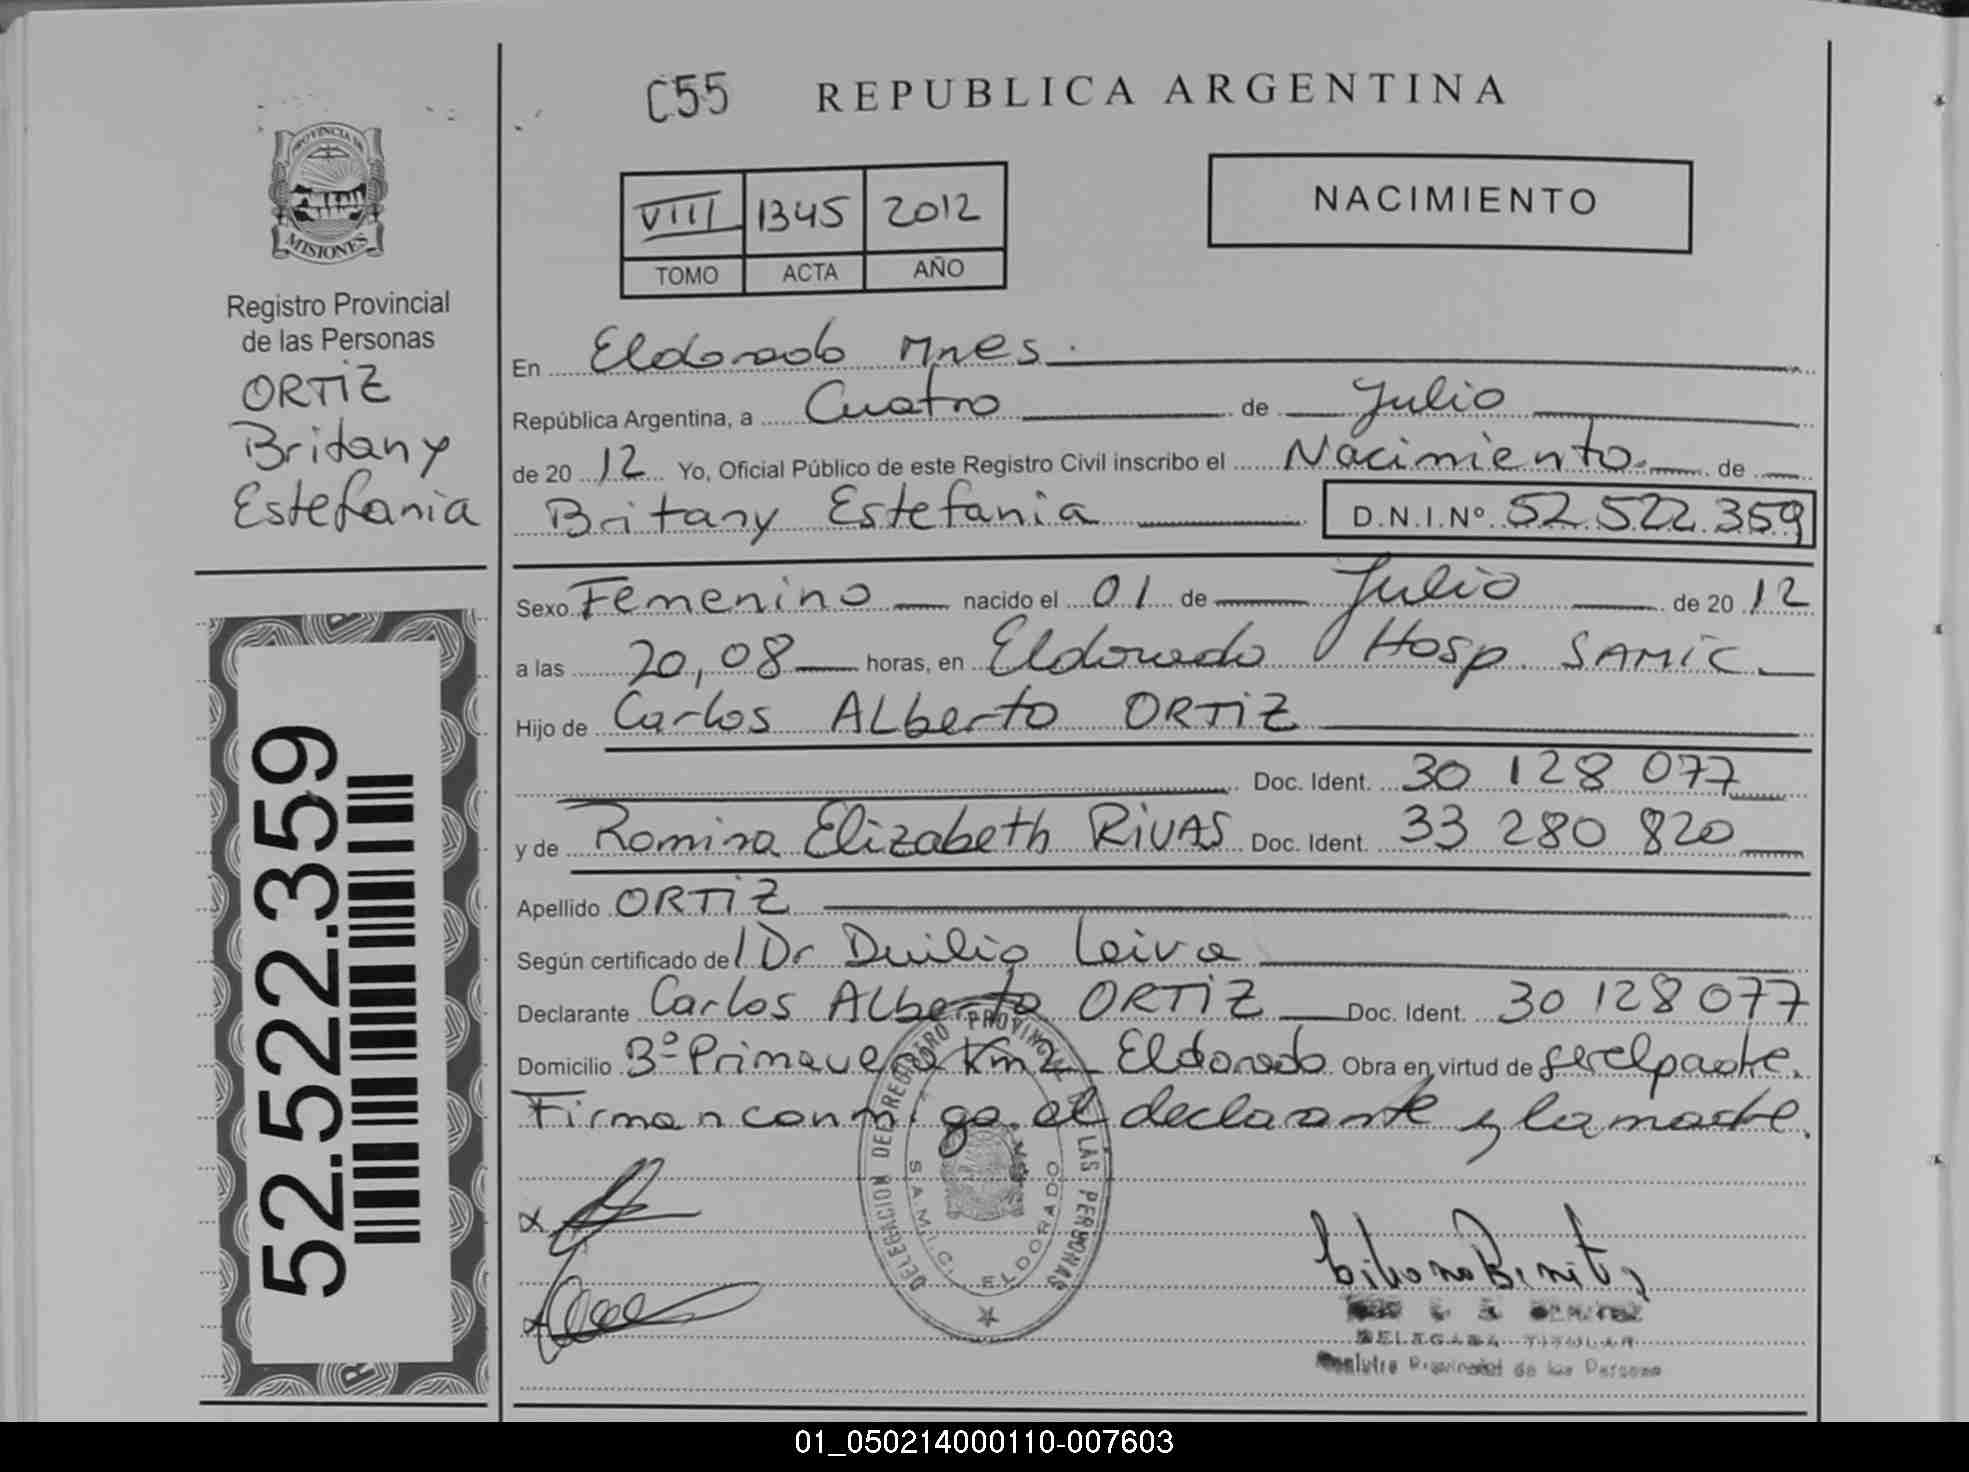 C55 REPUBLICA ARGENTINA
PROVINCIA DE
MISIONES
Registro Provincial
de las Personas
ORTIZ
Britany
Estefania
52.522.359
VIII 1345 2012
TOMO ACTA AÑO
NACIMIENTO
En Eldorado Mnes.
República Argentina, a Cuatro de Julio
de 20 12 Yo, Oficial Público de este Registro Civil inscribo el Nacimiento de
Britany Estefania D.N.I.Nº 52.522.359
Sexo Femenino nacido el 01 de Julio de 20 12
a las 20,08 horas, en Eldorado Hosp. SAMIC
Hijo de Carlos ALberto ORTIZ
Doc. Ident. 30 128 077
y de Romina Elizabeth RIVAS Doc. Ident. 33 280 820
Apellido ORTIZ
Según certificado de Dr Duilio Leiva
Declarante Carlos ALberto ORTIZ Doc. Ident. 30 128 077
Domicilio 3º Primavera Km 2 Eldorado Obra en virtud de ser el padre.
Firman conmigo el declarante y la madre.
DELEGACION DEL REGISTRO PROVINCIAL DE LAS PERSONAS
S.A.M.I.C. ELDORADO
DELEGADA TITULAR
Registro Provincial de las Personas
01_050214000110-007603